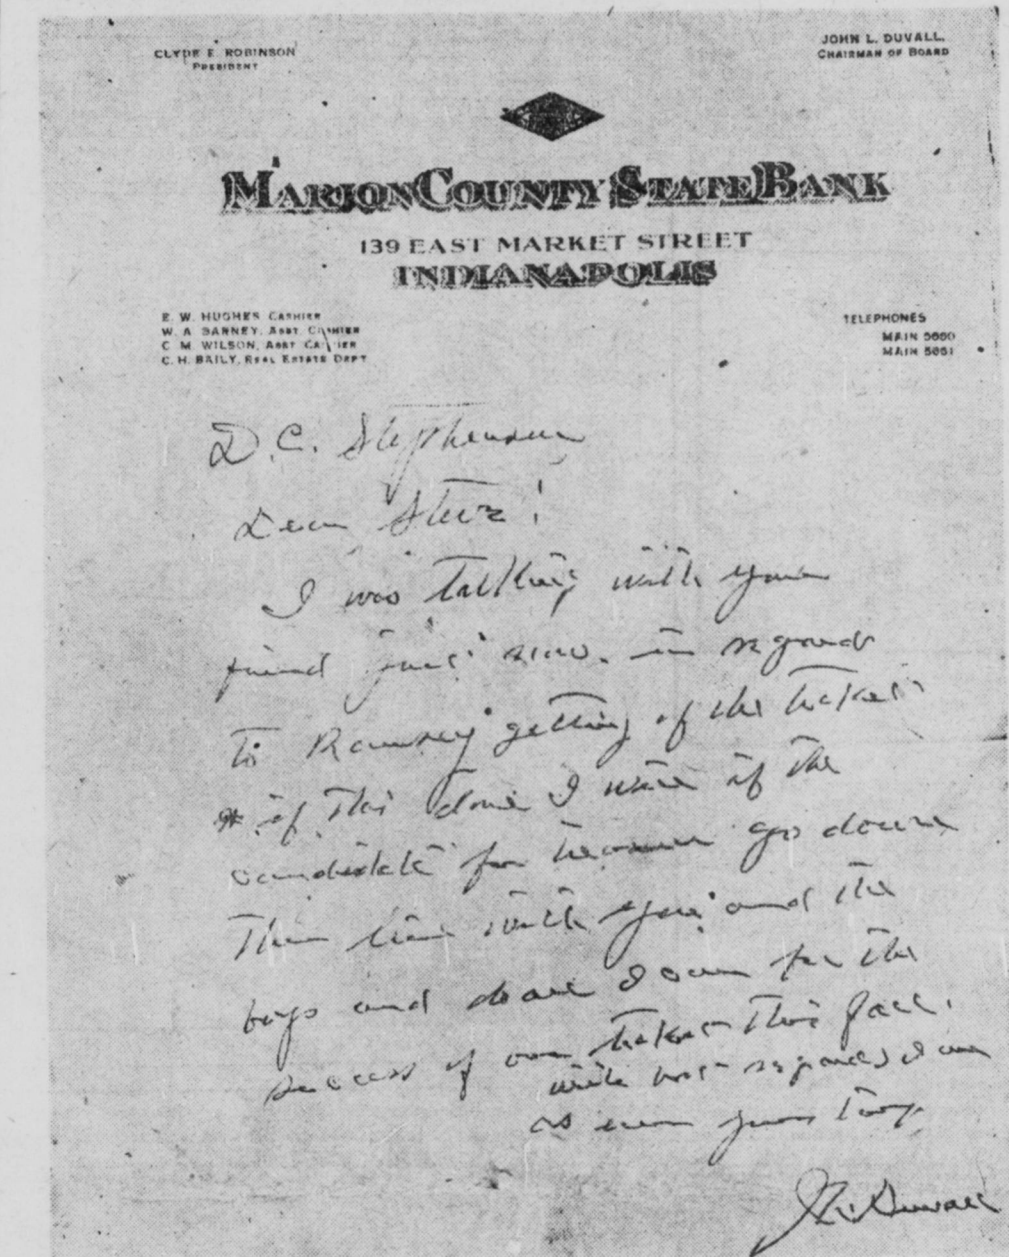 CLYDE E. ROBINSON
PRESIDENT
JOHN L. DUVALL,
CHAIRMAN OF BOARD
MARION COUNTY STATE BANK
139 EAST MARKET STREET
INDIANAPOLIS
E. W. HUGHES CASHIER
W. A. BARNEY, ASST. CASHIER
C. M. WILSON, ASST CASHIER
C. H. BAILY, REAL ESTATE DEPT
TELEPHONES
MAIN 5660
MAIN 5661
D. C. Stephenson
Dear Steve!
I was talking with your
friend just now. in regards
to Ramsey getting of the ticket
if this done I will if the
candidate for treasurer go down
the line with you and the
boys and do all I can for the
success of our ticket this fall.
with best regards I am
as ever yours truly
J L Duvall